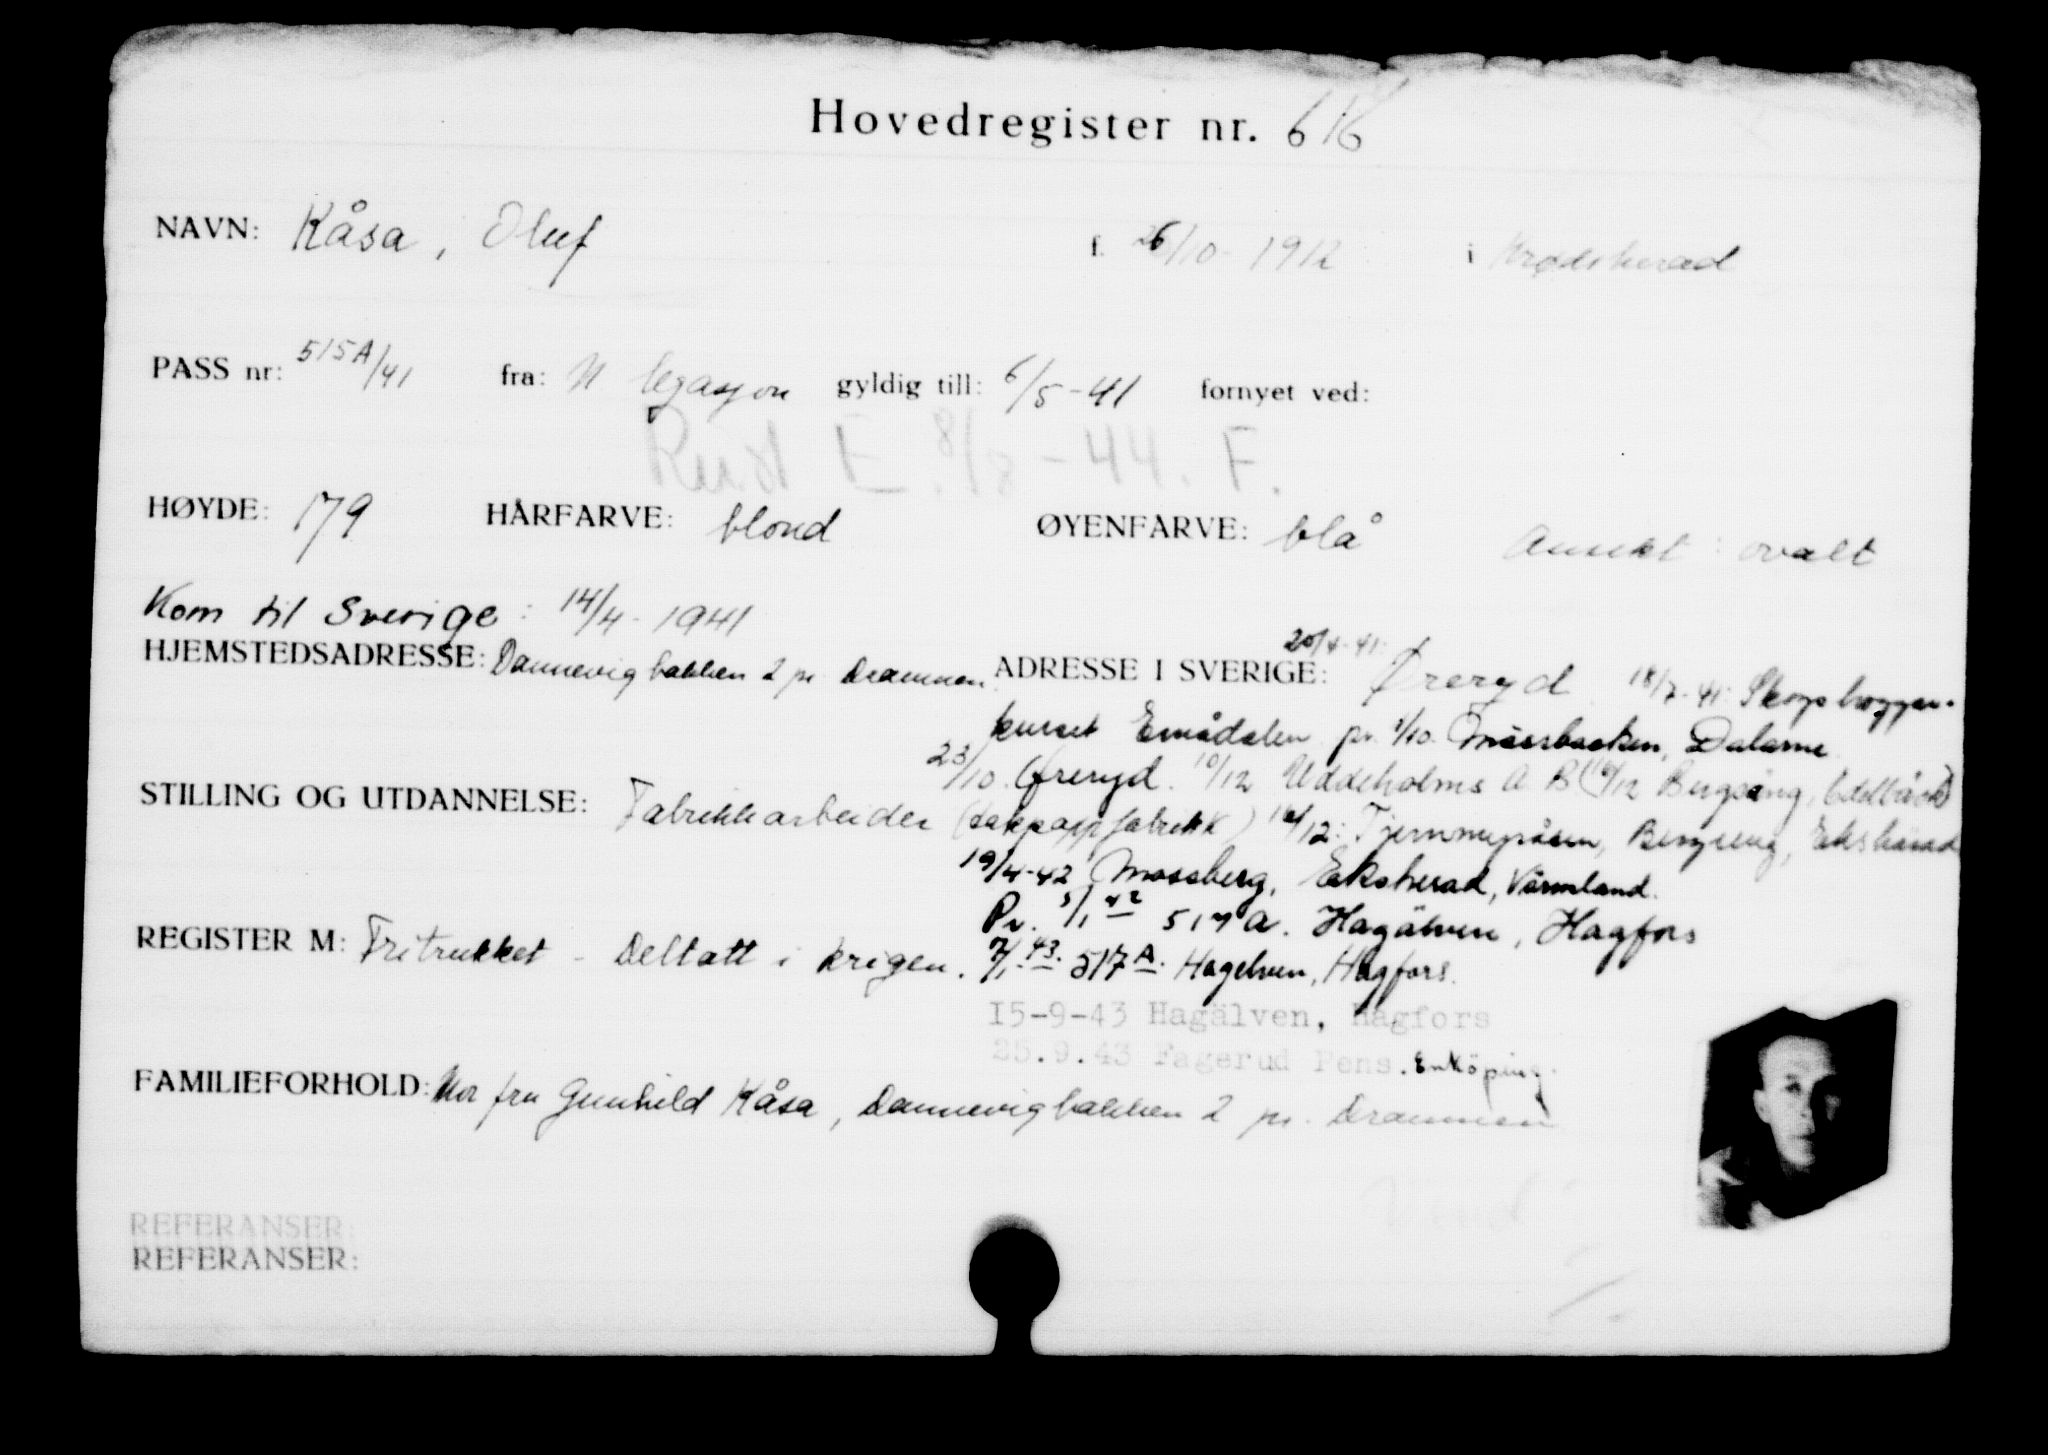 Hovedregister nr. 616
NAVN: Kåsa, Oluf f. 26/10-1912 i Krødsherad
PASS nr: 515A/41 fra: N legasjon gyldig till: 6/5-41 fornyet ved:
E. 8/8-44. F.
HØYDE: 179 HÅRFARVE: blond ØYENFARVE: blå Ansikt: ovalt
Kom til Sverige: 14/4-1941
HJEMSTEDSADRESSE: Dannevigbakken 2 pr. Drammen
ADRESSE I SVERIGE: 20/4-41: Øreryd 18/7-41: Skogshoggar-
kurset Emådalen pr. 1/10. Mässbacken, Dalarne
23/10. Øreryd. 10/12 Uddeholms A.B. (16/12 Bergsäng,
STILLING OG UTDANNELSE: Fabrikkarbeider (takpappfabrikk)
16/12: Bergseng, Ekshärad
19/4-42 Mossberg, Ekshärad, Värmland.
Pr. 5/1 42 517 A. Hagälven, Hagfors
REGISTER M: Fritrukket - Deltatt i krigen.
7/1.43. 517 A. Hagelven, Hagfors.
15-9-43 Hagälven, Hagfors
25.9.43 Fagerud Pens. Enköping.
FAMILIEFORHOLD: Mor fru Gunhild Kåsa, Dannevigbakken 2 pr. Drammen
REFERANSER:
REFERANSER: